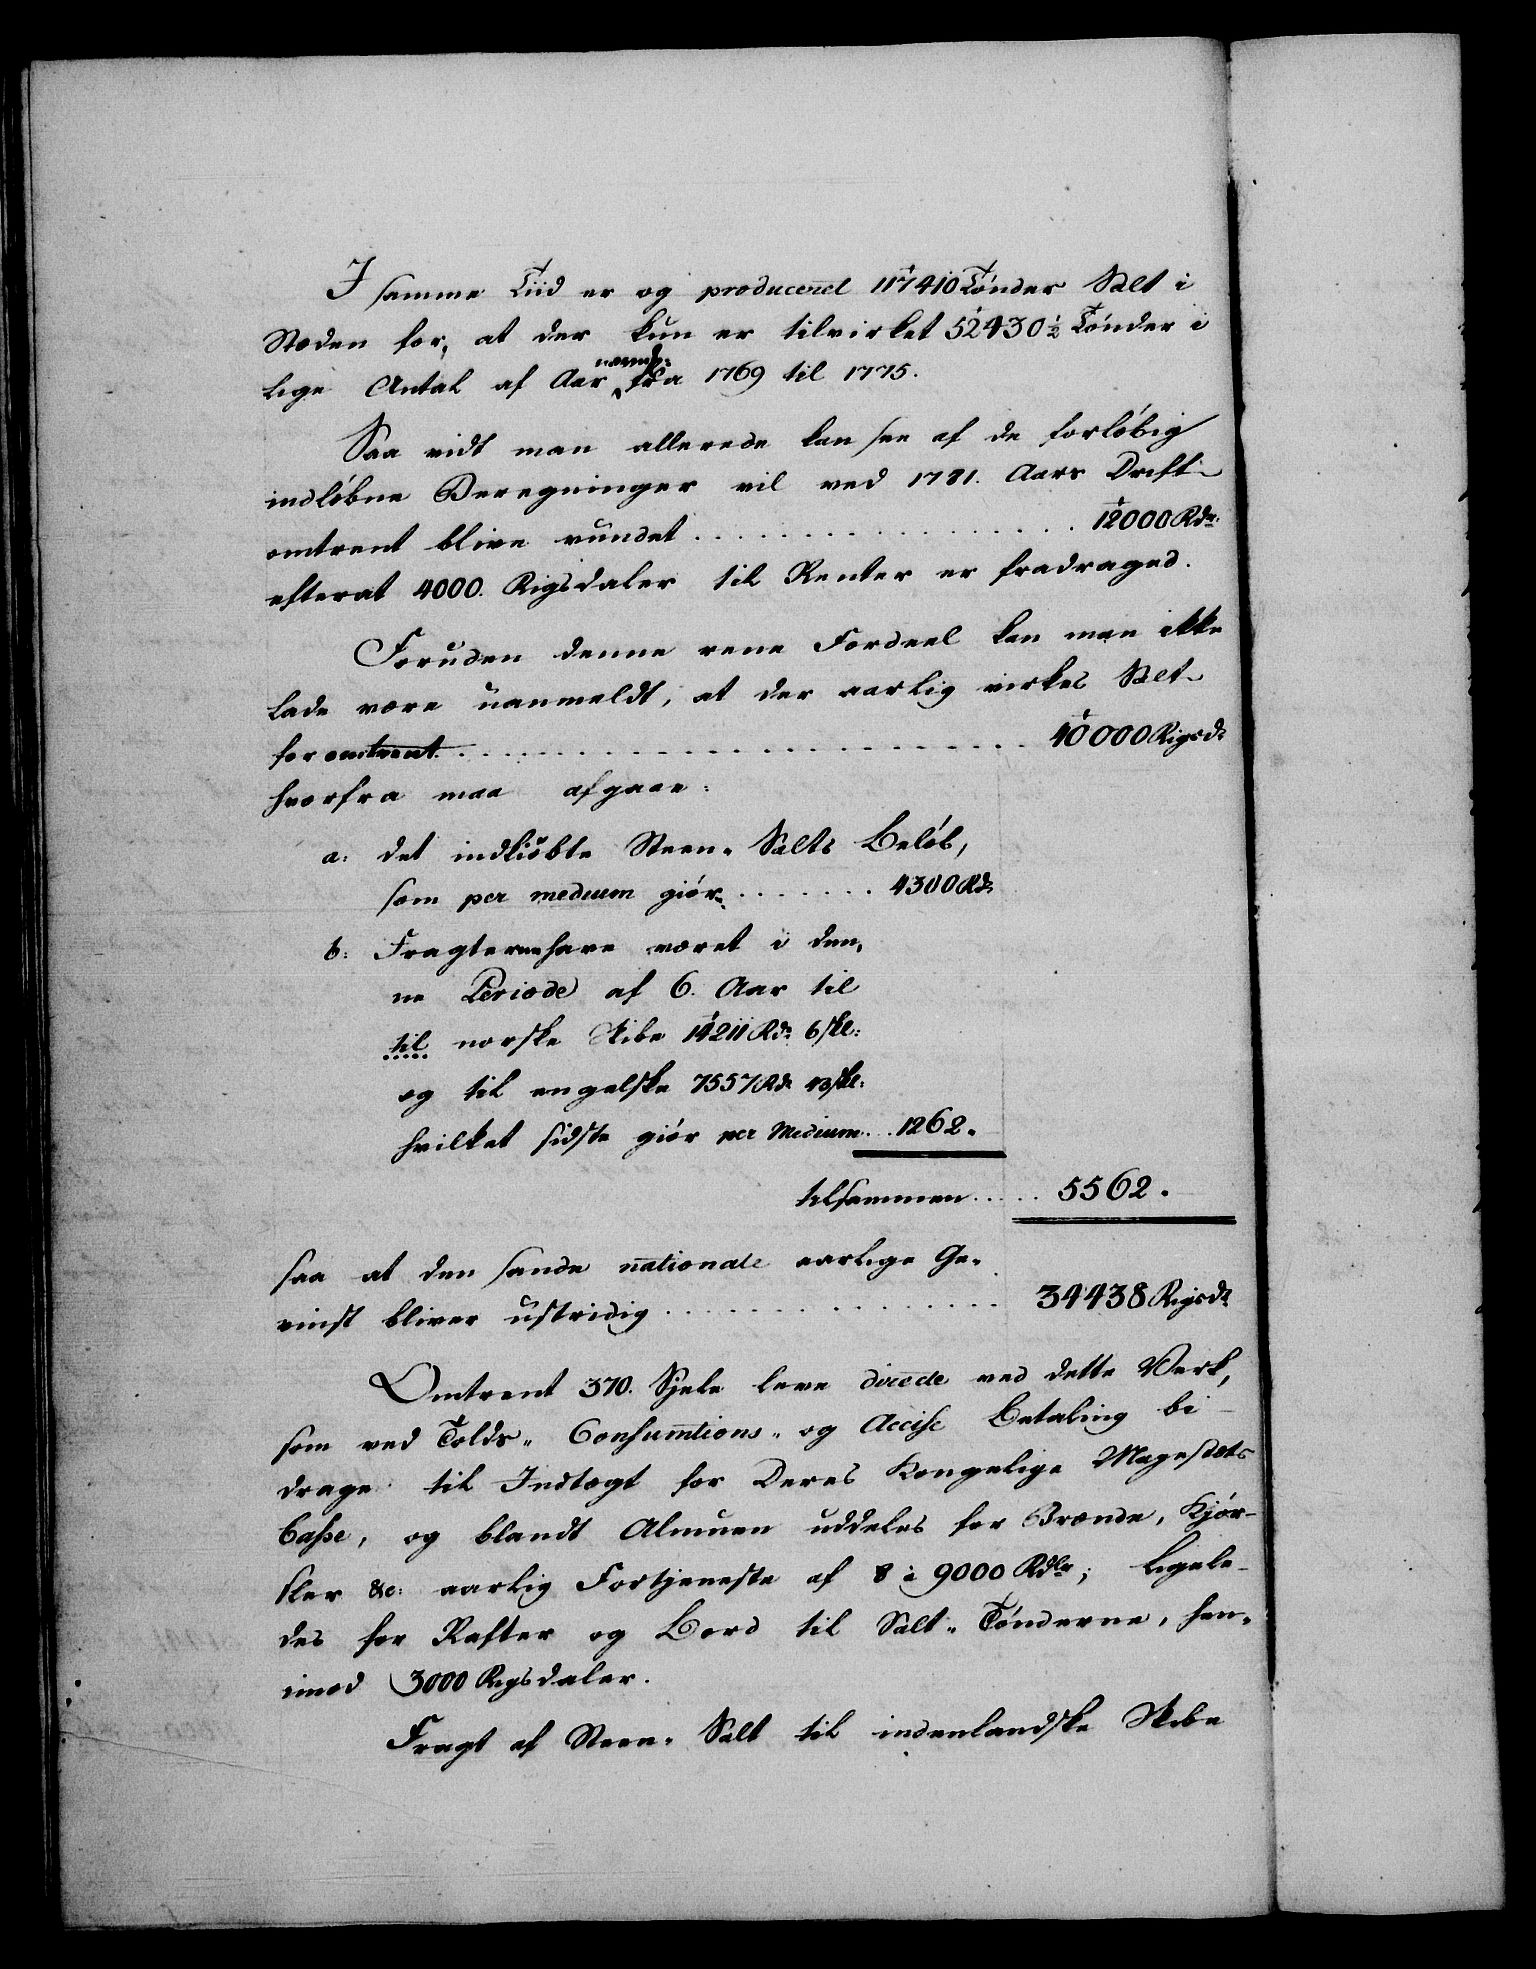 I samme Tiid er og producered 117410 Tönder Salt i
Stæden for, at der kun er tilvirket 52430½ Tönder i
lige Antal af Aar nemlig: fra 1769 til 1775.
Saa vidt man allerede kan see af de forlöbig
indlöbne Beregninger vil ved 1781. Aars Drift
omtrent blive vundet . . . . . . . . . . . . . . . . 12000 Rdr.
efterat 4000. Rigsdaler til Renter er fradraged.
Foruden denne rene Fordeel kan man ikke
lade være uanmeldt, at der aarlig virkes Salt
for omtrent . . . . . . . . . . . . . . . . . . . . . . . 40000 Rigsd.
hvorfra maa afgaae:
a: det indkiöbte Steen-Salts Belöb,
som per medium giör . . . . . . . 4300 Rd.
b: Fragterne have været i den-
ne Periode af 6. Aar til
til norske Skibe 14211 Rd. 6 sk:
og til engelske 7557 Rd. 43 sk:
hvilket sidste giör per Medium . . . 1262.
tilsammen . . . . . 5562.
saa at den sande nationale aarlige Ge-
vinst bliver ustridig . . . . . . . . . . . . . . . 34438 Rigsd.
Omtrent 370. Sjele leve directe ved dette Verk,
som ved Tolds- Consumtions- og Accise Betaling bi-
drage til Indtægt for Deres Kongelige Majestæts
Casse, og blandt Almuen uddeles for Brænde, Kjör-
sler &c: aarlig Fortjeneste af 8 à 9000 Rdlr; ligele-
des for Rafter og Bord til Salt-Tönderne, hen-
imod 3000 Rigsdaler.
Fragt af Steen-Salt til indenlandske Skibe